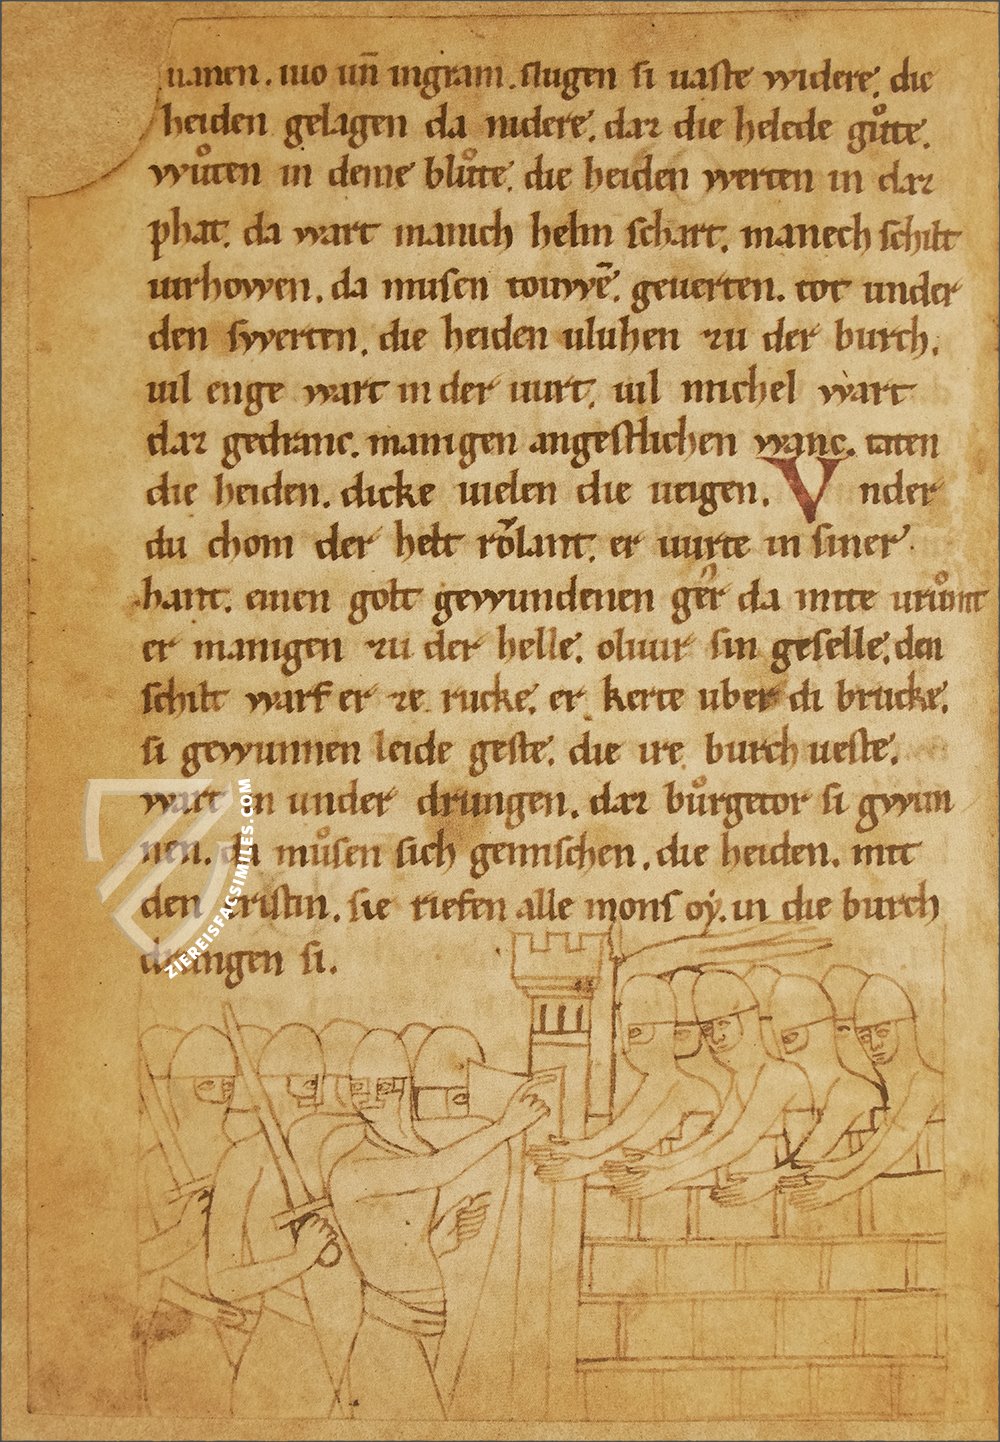 uanen. iuo un̄ ingram. slugen si uaste widere. die
heiden gelagen da nidere. daz die helede gůte.
wůten in deme blůte. die heiden werten in daz
phat. da wart manich helm schart. manech schilt
uirhowen. da musen touwē. geuerten. tot under
den swerten. die heiden uluhen zu der burch.
uil enge wart in der uurt. uil michel wart
daz gedranc. manigen angestlichen wanc. taten
die heiden. dicke uielen die ueigen. V nder
du chom der helt rolant. er uurte in siner
hant. einen golt gewundenen ger da mite urůmt
er manigen zu der helle. oliuir sin geselle. den
schilt warf er ze rucke. er kerte uber di brucke.
si gewunnen leide geste. die ire burch ueste.
wart in under drungen. daz bůrgetor si gwun
nen. da můsen sich gemischen. die heiden. mit
den cristin. sie riefen alle mons oẏ. in die burch
drungen si.
ZIEREISFACSIMILES.COM